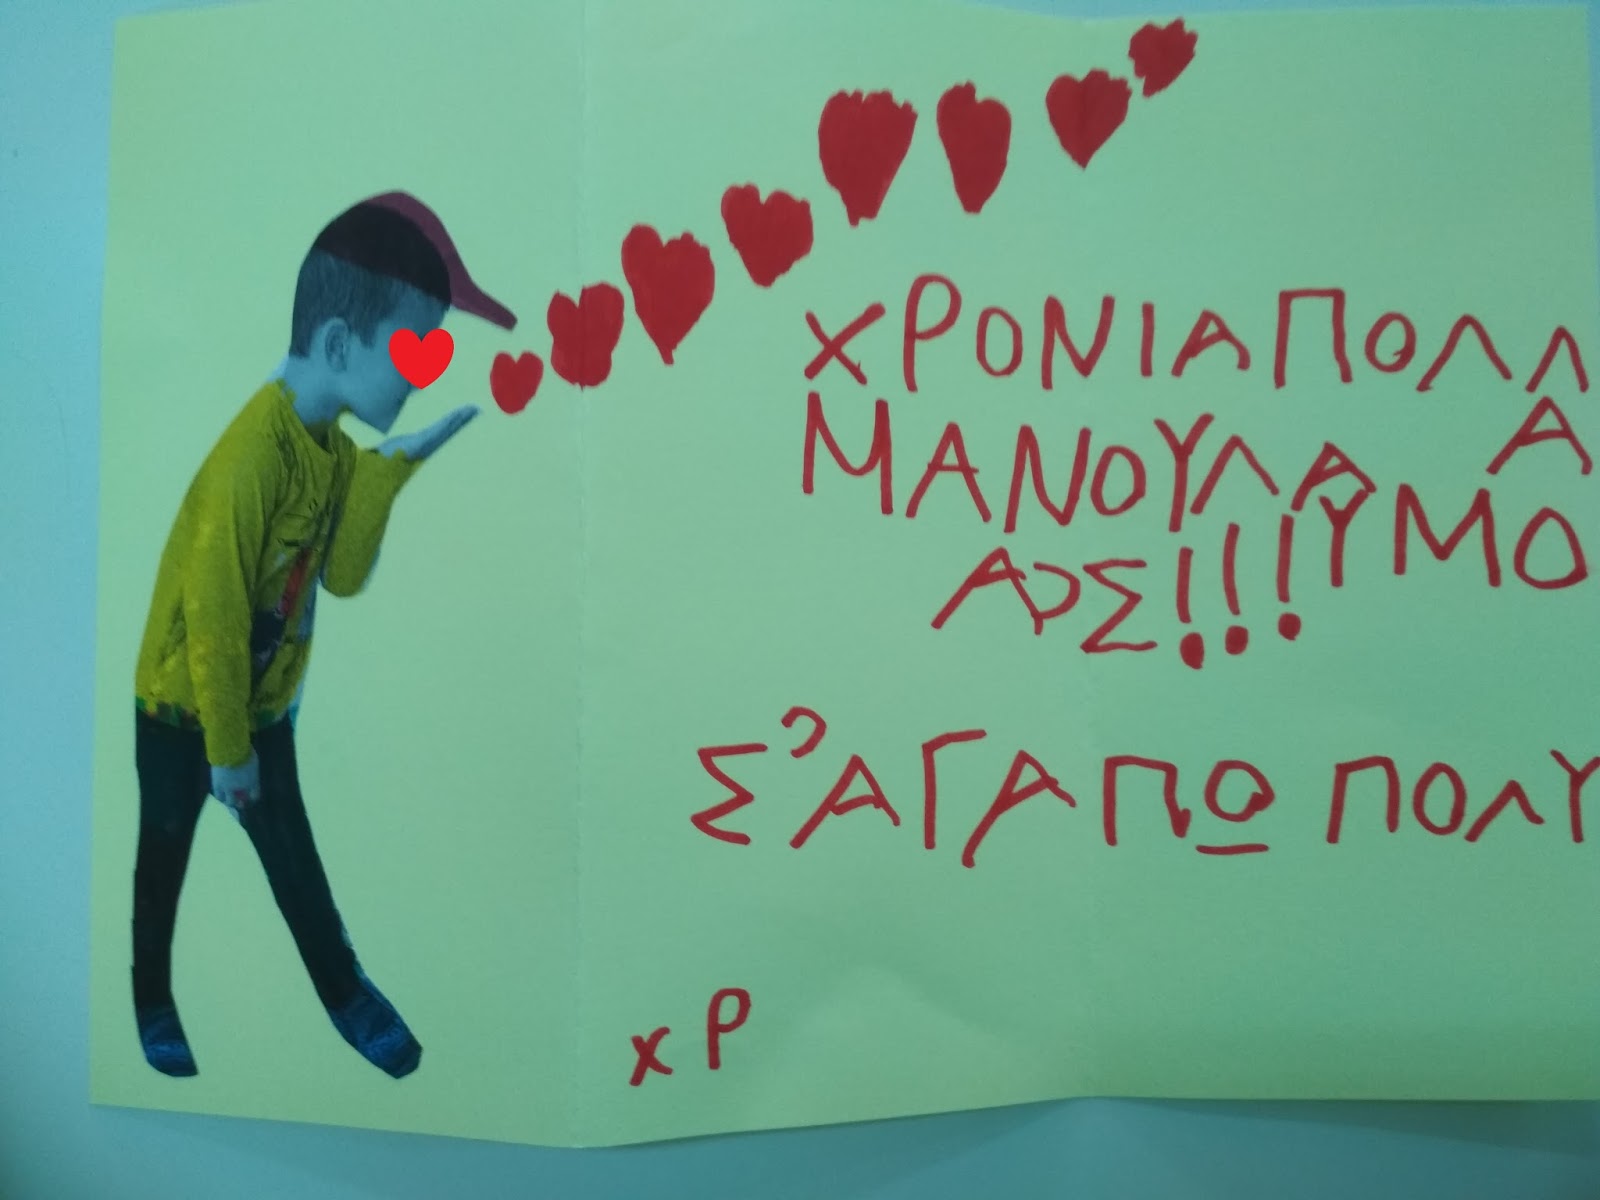 ΧΡΟΝΙΑ ΠΟΛΛ
Α
ΜΑΝΟΥΛΑ ΥΜΟ
Σ'ΑΓΑΠΩ ΠΟΛΥ
ΧΡ